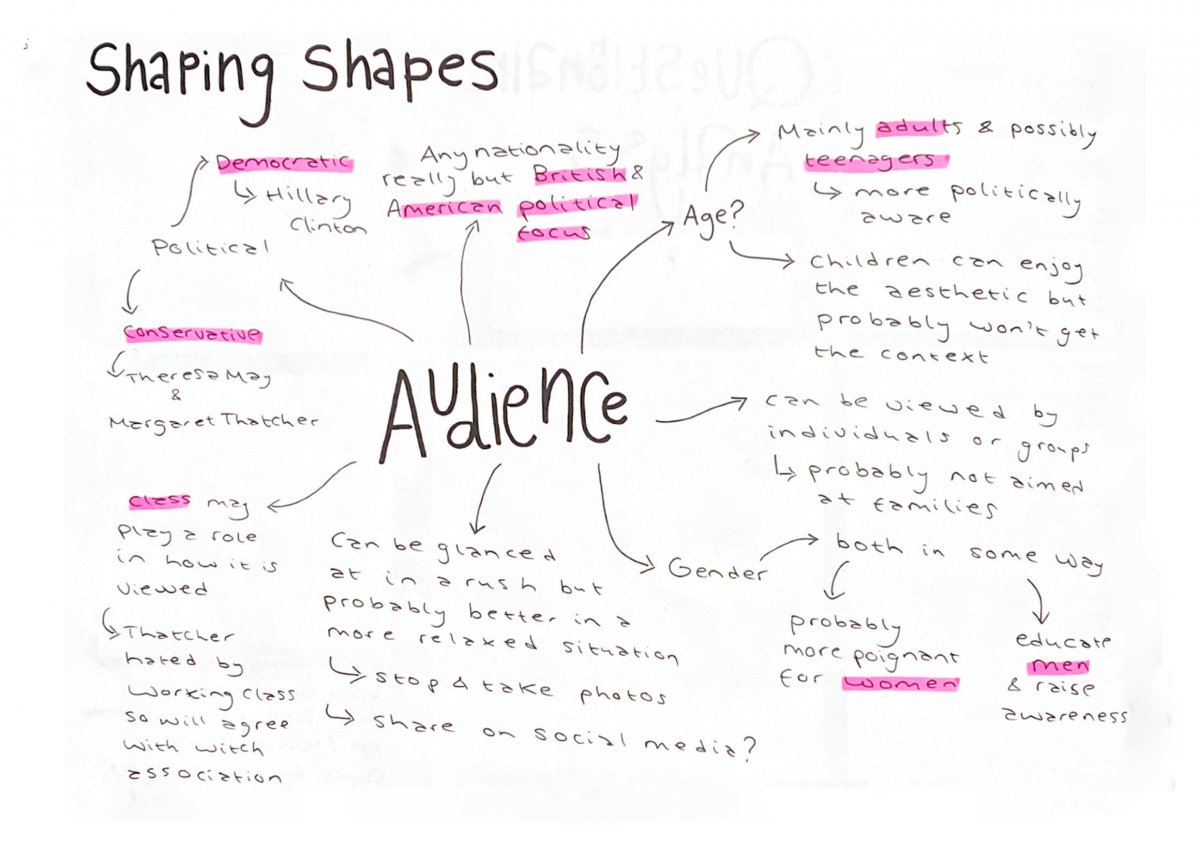 Shaping Shapes
Democratic
Hillary
Clinton
Political
Conservative
Theresa May
&
Margaret Thatcher
Any nationality
really but British &
American political
focus
Age?
Mainly adults & possibly
teenagers
more politically
aware
Children can enjoy
the aesthetic but
probably won't get
the context
AUdieNCe
can be viewed by
individuals or groups
probably not aimed
at families
Class may
play a role
in how it is
viewed
Thatcher
hated by
working class
so will agree
with witch
association
Can be glanced
at in a rush but
probably better in a
more relaxed situation
stop & take photos
share on social media?
Gender
both in some way
probably
more poignant
for women
educate
men
& raise
awareness